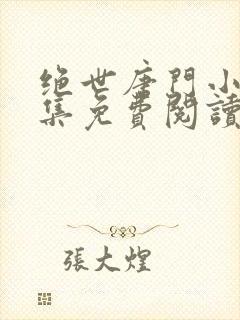 绝世唐門小
集免費閱讀
張大煌